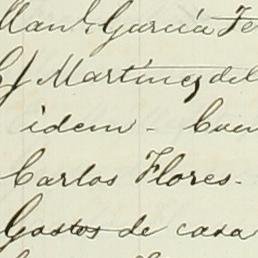 Manl. García Fe
J Martinez del
idem - Cuen
Carlos Flores.
Gastos de casa